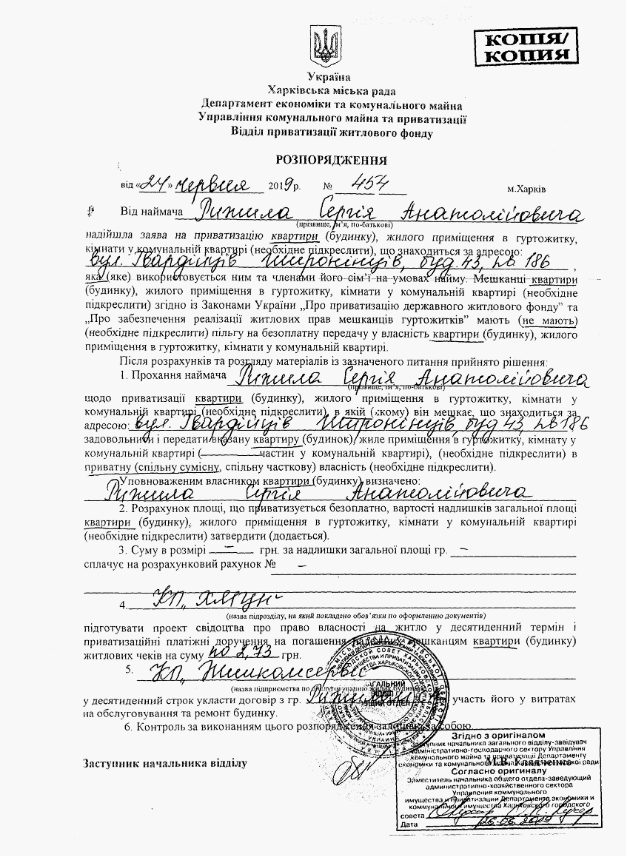 КОПІЯ/
КОПИЯ
Україна
Харківська міська рада
Департамент економіки та комунального майна
Управління комунального майна та приватизації
Відділ приватизації житлового фонду
РОЗПОРЯДЖЕННЯ
від «24» червня 2019р. № 454 м.Харків
Від наймача Рижила Сергія Анатолійовича
(прізвище, ім'я, по-батькові)
надійшла заява на приватизацію квартири (будинку), жилого приміщення в гуртожитку,
кімнати у комунальній квартирі (необхідне підкреслити), що знаходиться за адресою:
вул. Гвардійців Широнінців, буд 43, кв 186 ,
яка (яке) використовується ним та членами його сім'ї на умовах найму. Мешканці квартири
(будинку), жилого приміщення в гуртожитку, кімнати у комунальній квартирі (необхідне
підкреслити) згідно із Законами України „Про приватизацію державного житлового фонду" та
„Про забезпечення реалізації житлових прав мешканців гуртожитків" мають (не мають)
(необхідне підкреслити) пільгу на безоплатну передачу у власність квартири (будинку), жилого
приміщення в гуртожитку, кімнати у комунальній квартирі.
Після розрахунків та розгляду матеріалів із зазначеного питання прийнято рішення:
1. Прохання наймача Рижила Сергія Анатолійовича
(прізвище, ім'я, по-батькові)
щодо приватизації квартири (будинку), жилого приміщення в гуртожитку, кімнати у
комунальній квартирі (необхідне підкреслити), в якій (якому) він мешкає, що знаходиться за
адресою: вул. Гвардійців Широнінців, буд 43, кв 186
задовольнити і передати вказану квартиру (будинок), жиле приміщення в гуртожитку, кімнату у
комунальній квартирі ( частин у комунальній квартирі), (необхідне підкреслити) в
приватну (спільну сумісну, спільну часткову) власність (необхідне підкреслити).
Уповноваженим власником квартири (будинку) визначено:
Рижила Сергія Анатолійовича
2. Розрахунок площі, що приватизується безоплатно, вартості надлишків загальної площі
квартири (будинку), жилого приміщення в гуртожитку, кімнати у комунальній квартирі
(необхідне підкреслити) затвердити (додається).
3. Суму в розмірі — грн. за надлишки загальної площі гр. –
сплачує на розрахунковий рахунок № –
4.
(назва підрозділу, на який покладено обов'язки по оформленню документів)
підготувати проект свідоцтва про право власності на житло у десятиденний термін і
приватизаційні платіжні доручення на погашення мешканцям квартири (будинку)
житлових чеків на суму по 2,73 грн.
5. КП „Жилкомсервіс"
(назва підприємства по обслуговуванню
у десятиденний строк укласти договір з гр. участь його у витратах
на обслуговування та ремонт будинку.
6. Контроль за виконанням цього розпорядження залишаю за собою.
Заступник начальника відділу
Згідно з оригіналом
Заступник начальника загального відділу-завідувач
адміністративно-господарчого сектору Управління
комунального майна та приватизації Департаменту
економіки та комунального ради
Согласно оригиналу
Заместитель начальника общего отдела-заведующий
административно-хозяйственного сектора
Управления коммунального
имущества и приватизации Департамента экономики и
коммунального имущества Харьковского городского
совета
Дата